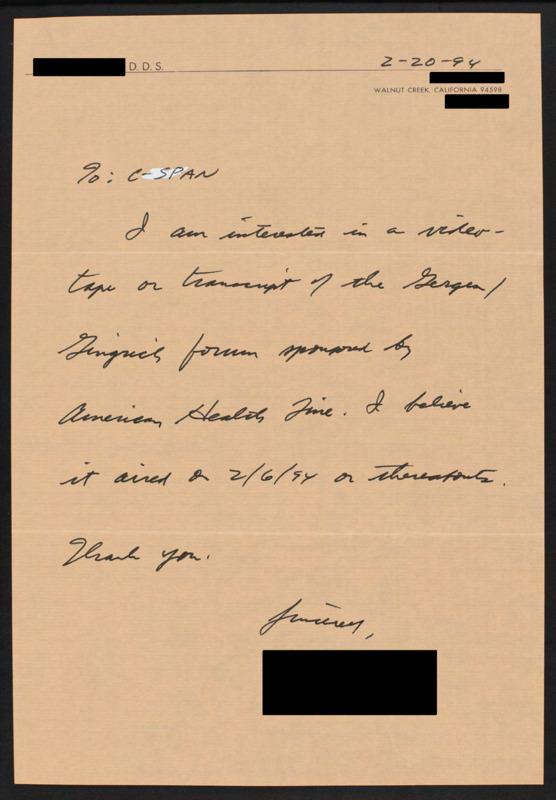 D. D. S.
2-20-94
WALNUT CREEK, CALIFORNIA 94598
To: C-SPAN
I am interested in a video-
tape or transcript of the Gergen/
Gingrich forum sponsored by
American Health Line. I believe
it aired on 2/6/94 or thereabouts.
Thank you.
Sincerely,